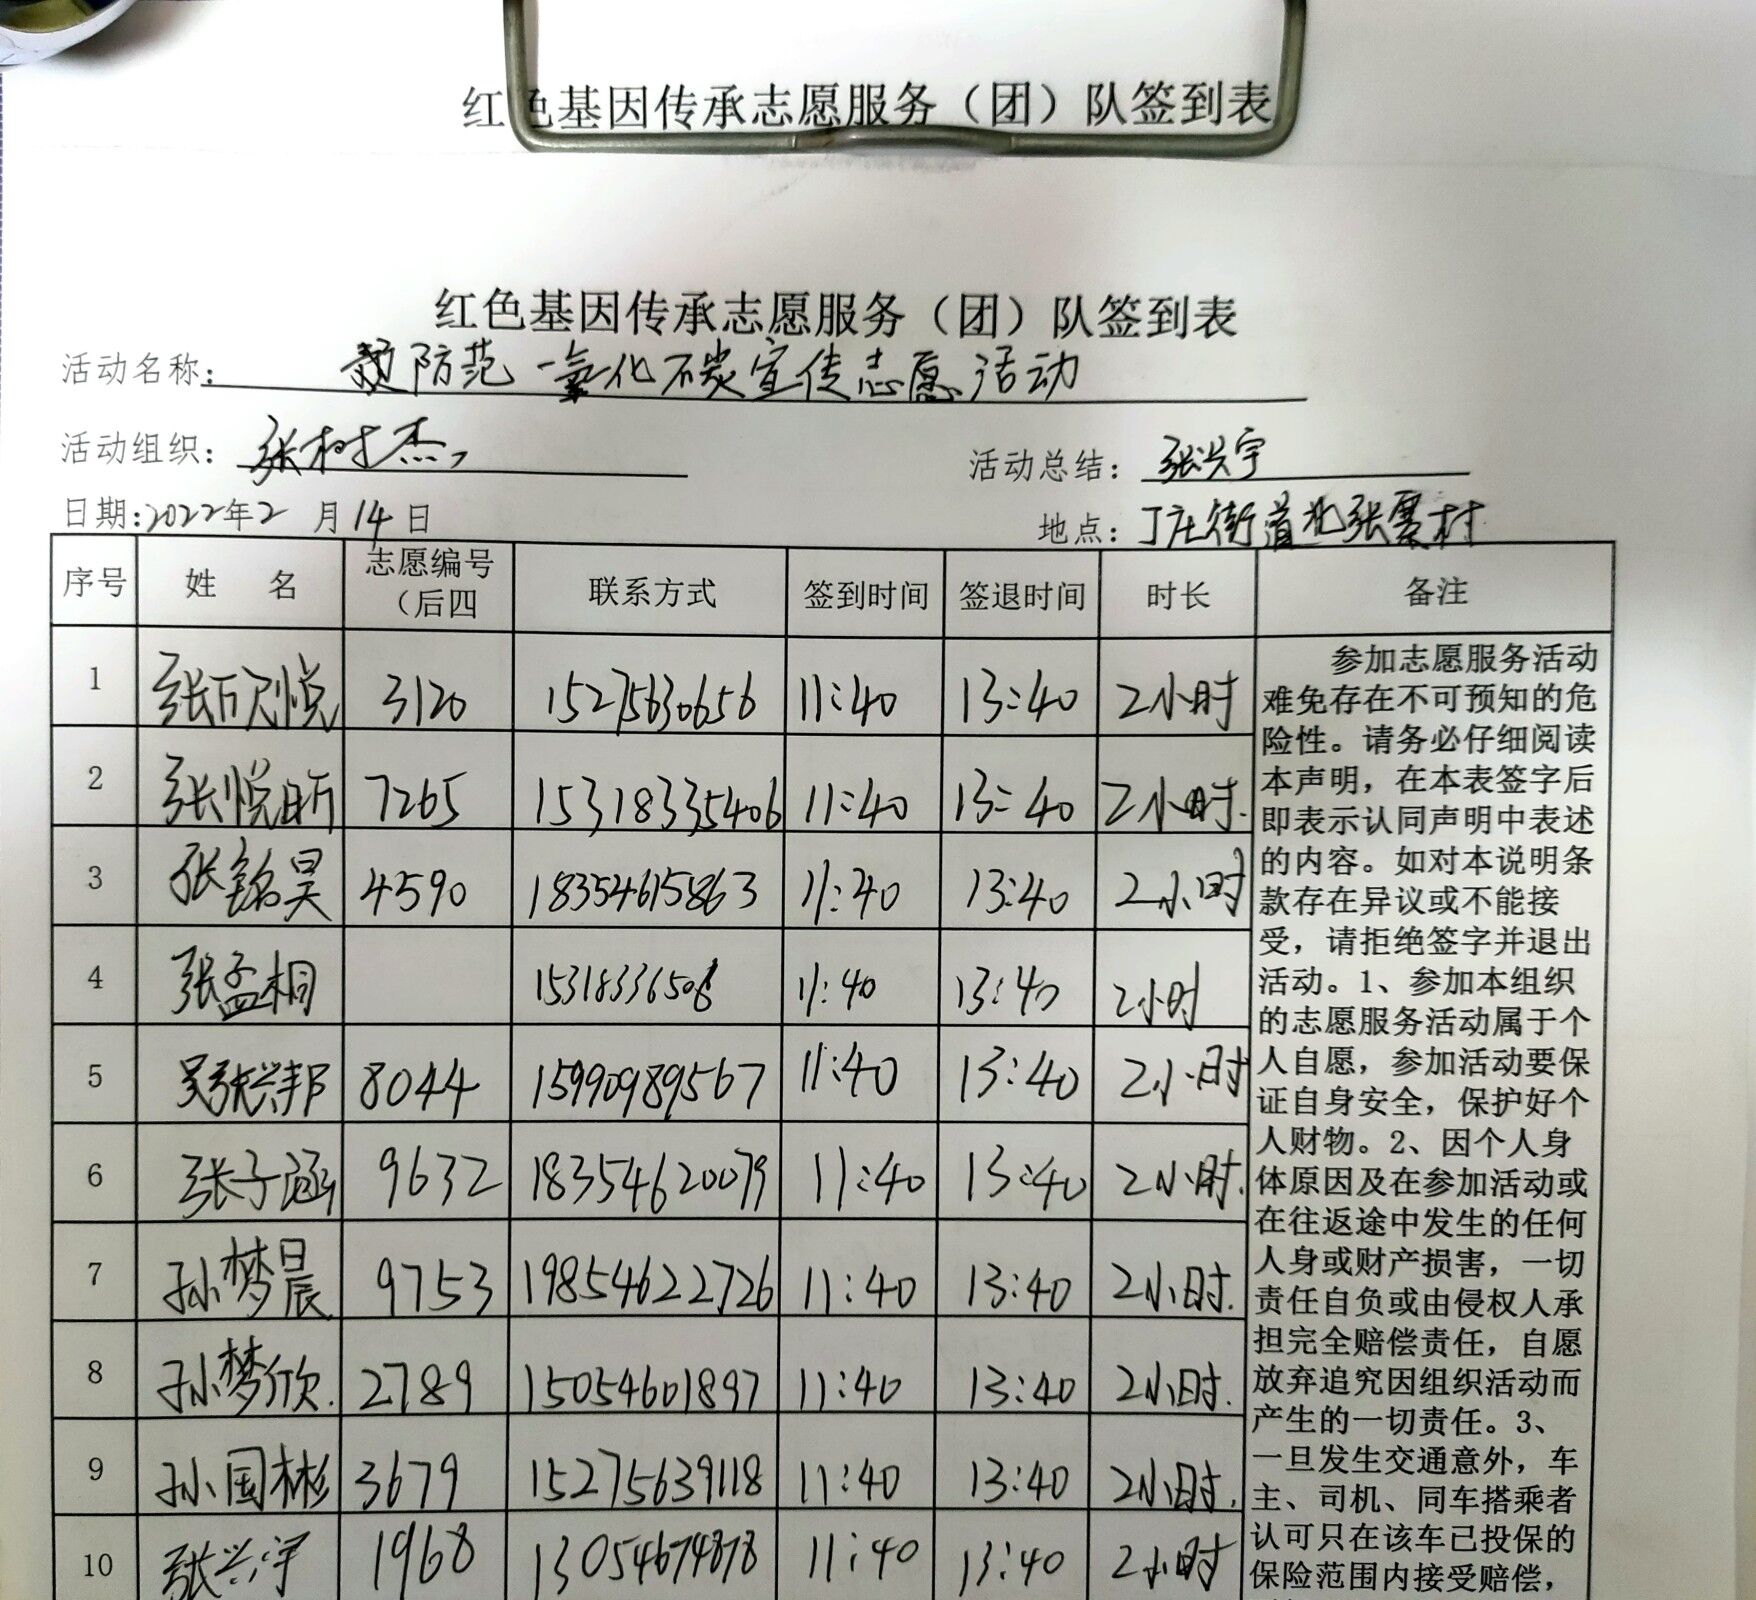 红色基因传承志愿服务（团）队签到表
红色基因传承志愿服务（团）队签到表
活动名称： 防范一氧化碳宣传志愿活动
活动组织： 张树杰 活动总结： 张兴宇
日期:2022年2月14日 地点： 丁庄街道北张寨村
序号 姓 名 志愿编号（后四 联系方式 签到时间 签退时间 时长 备注
1 张 悦 3120 15275630656 11:40 13:40 2小时
2 张悦昕 7265 15318335406 11:40 13:40 2小时.
3 张铭昊 4590 18354615863 11:40 13:40 2小时
4 张孟桐 1531833650 11:40 13:40 2小时
5 张兴邦 8044 15990989567 11:40 13:40 2小时
6 张子涵 9632 18354620079 11:40 13:40 2小时.
7 孙梦晨 9753 19854622726 11:40 13:40 2小时.
8 孙梦欣. 2789 15054601897 11:40 13:40 2小时.
9 孙国彬 3679 15275639118 11:40 13:40 2小时.
10 张兴宇 1968 13054674878 11:40 13:40 2小时
参加志愿服务活动
难免存在不可预知的危
险性。请务必仔细阅读
本声明，在本表签字后
即表示认同声明中表述
的内容。如对本说明条
款存在异议或不能接
受，请拒绝签字并退出
活动。1、参加本组织
的志愿服务活动属于个
人自愿，参加活动要保
证自身安全，保护好个
人财物。2、因个人身
体原因及在参加活动或
在往返途中发生的任何
人身或财产损害，一切
责任自负或由侵权人承
担完全赔偿责任，自愿
放弃追究因组织活动而
产生的一切责任。3、
一旦发生交通意外，车
主、司机、同车搭乘者
认可只在该车已投保的
保险范围内接受赔偿，